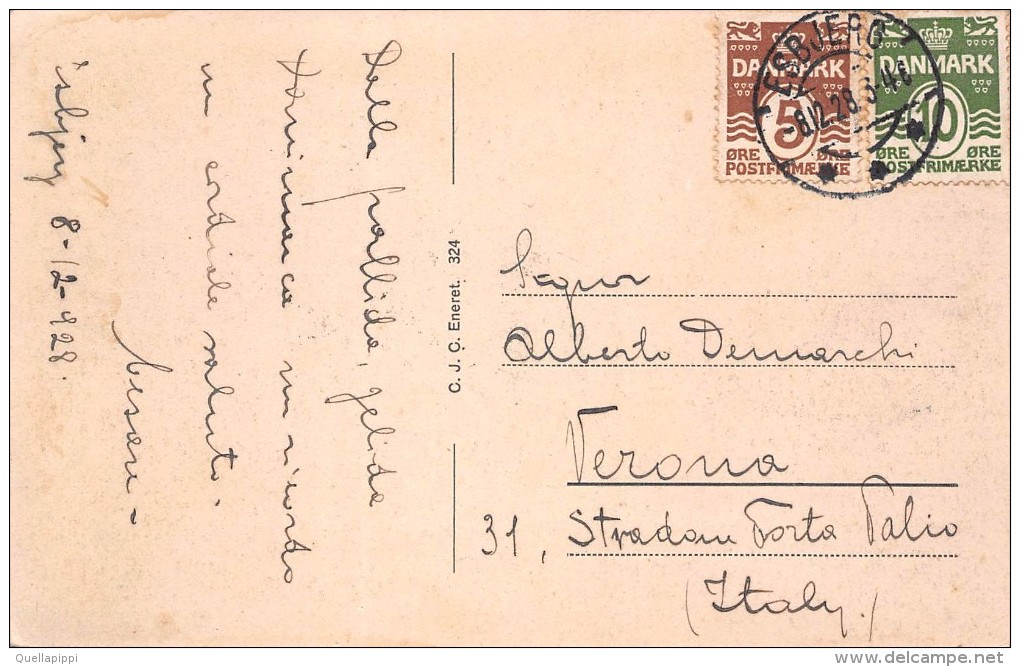 Dalla pallida, gelida
Danimarca un ricordo
un cordiale saluto.
Cesare
Esbjerg 8-12-928.
C. J. C. Eneret. 324
DANMARK
5
ØRE ØRE
POSTFRIMÆRKE
DANMARK
10
ØRE ØRE
POSTFRIMÆRKE
ESBJERG
-8.12.28.
Signor
Alberto Demarchi
Verona
31, Stradone Porta Palio
(Italy.)
Quellapippi
www.delcampe.net